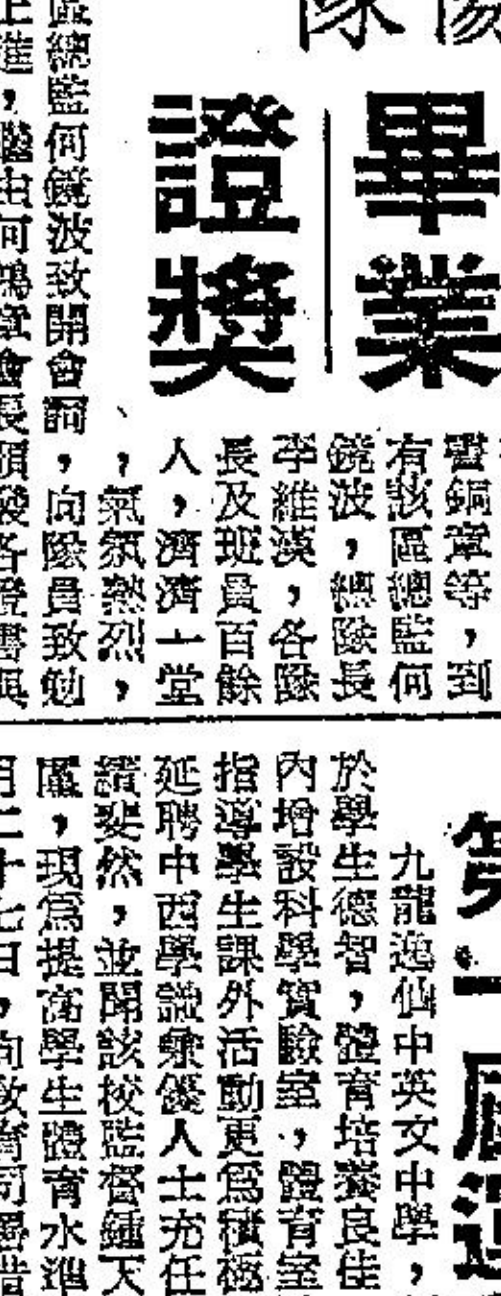 隊
畢業
證獎
書銅章等，到
有該區總監何
鏡波，總隊長
李維漢，各隊
長及班員百餘
人，濟濟一堂
，氣氛熱烈，
區總監何鏡波致開會詞，向隊員致勉
上進，繼由何鴻章會長頒發各證書與
第一屆
九龍逸仙中英文中學，
於學生德智，體育培養良佳
內增設科學實驗室，體育室
指導學生課外活動更為積極
延聘中西學識兼優人士充任
績斐然，並聞該校監督鍾天
，現為提高學生體育水準
月二十七日，向教育司署借